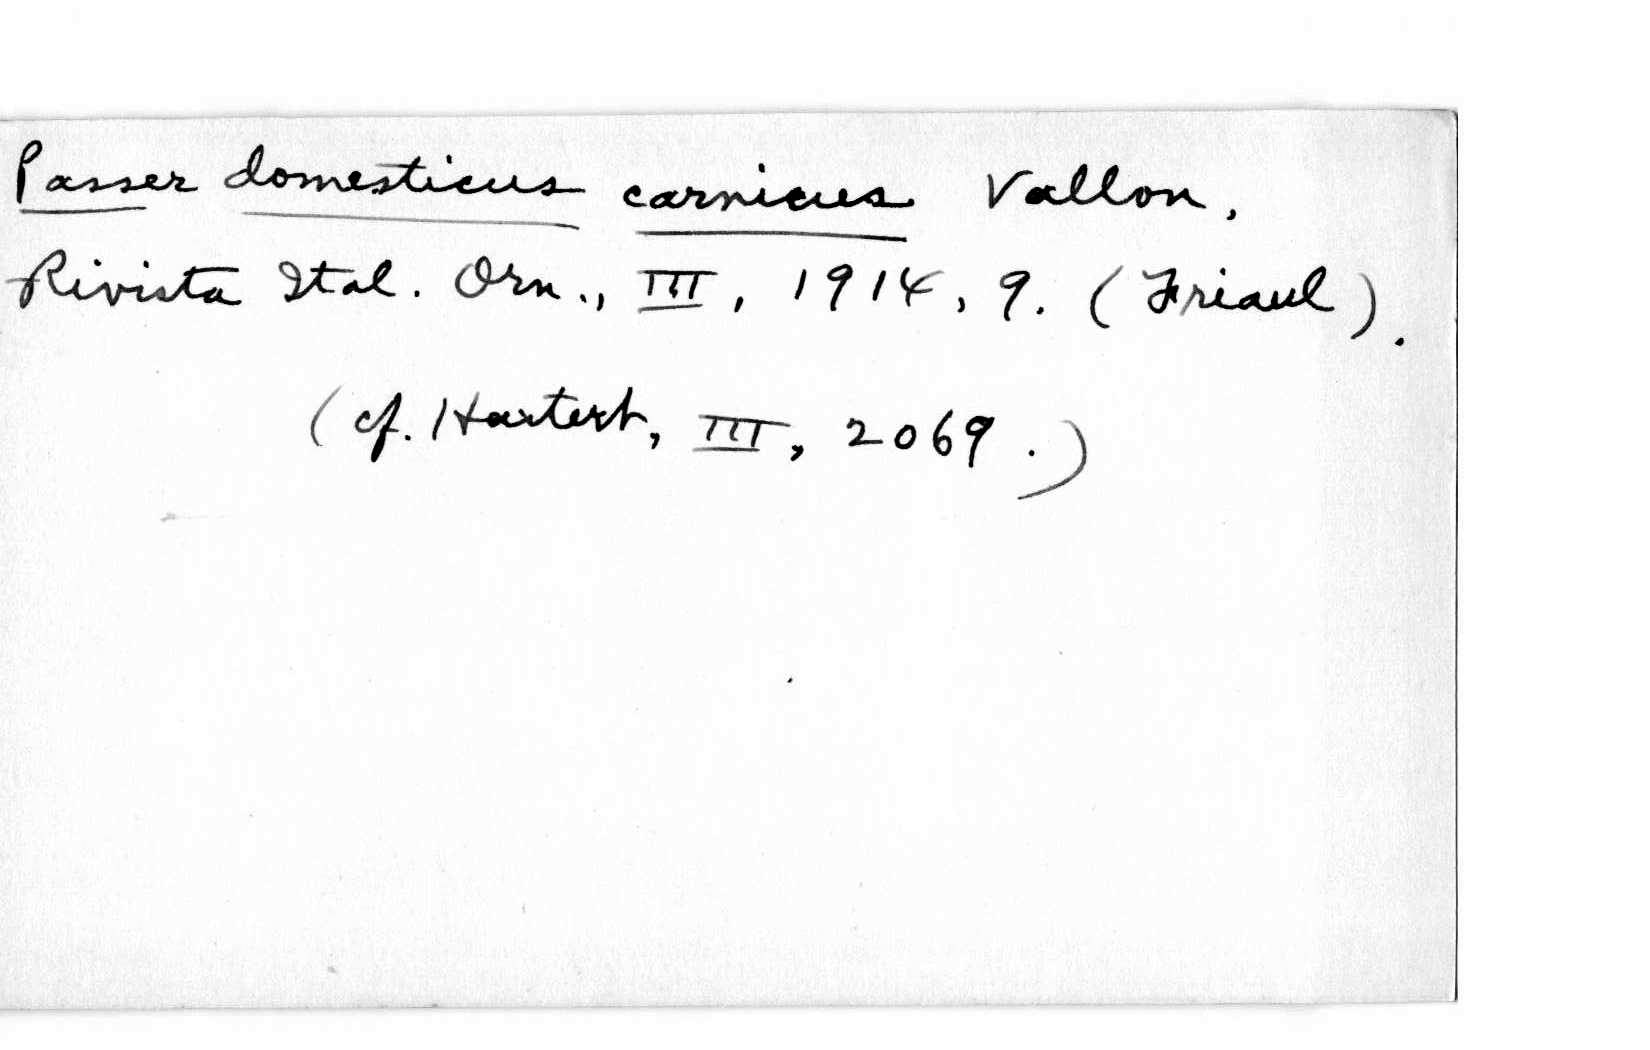 Passer domesticus carnicus Vallon,
Rivista Ital. Orn., III, 1914, 9. (Friaul).
(cf. Hartert, III, 2069.)